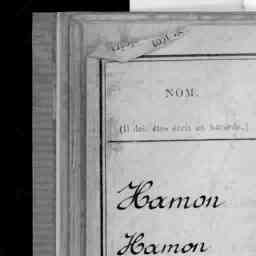 NOM.
(Il doit être écrit en bâtarde.)
Hamon
Hamon